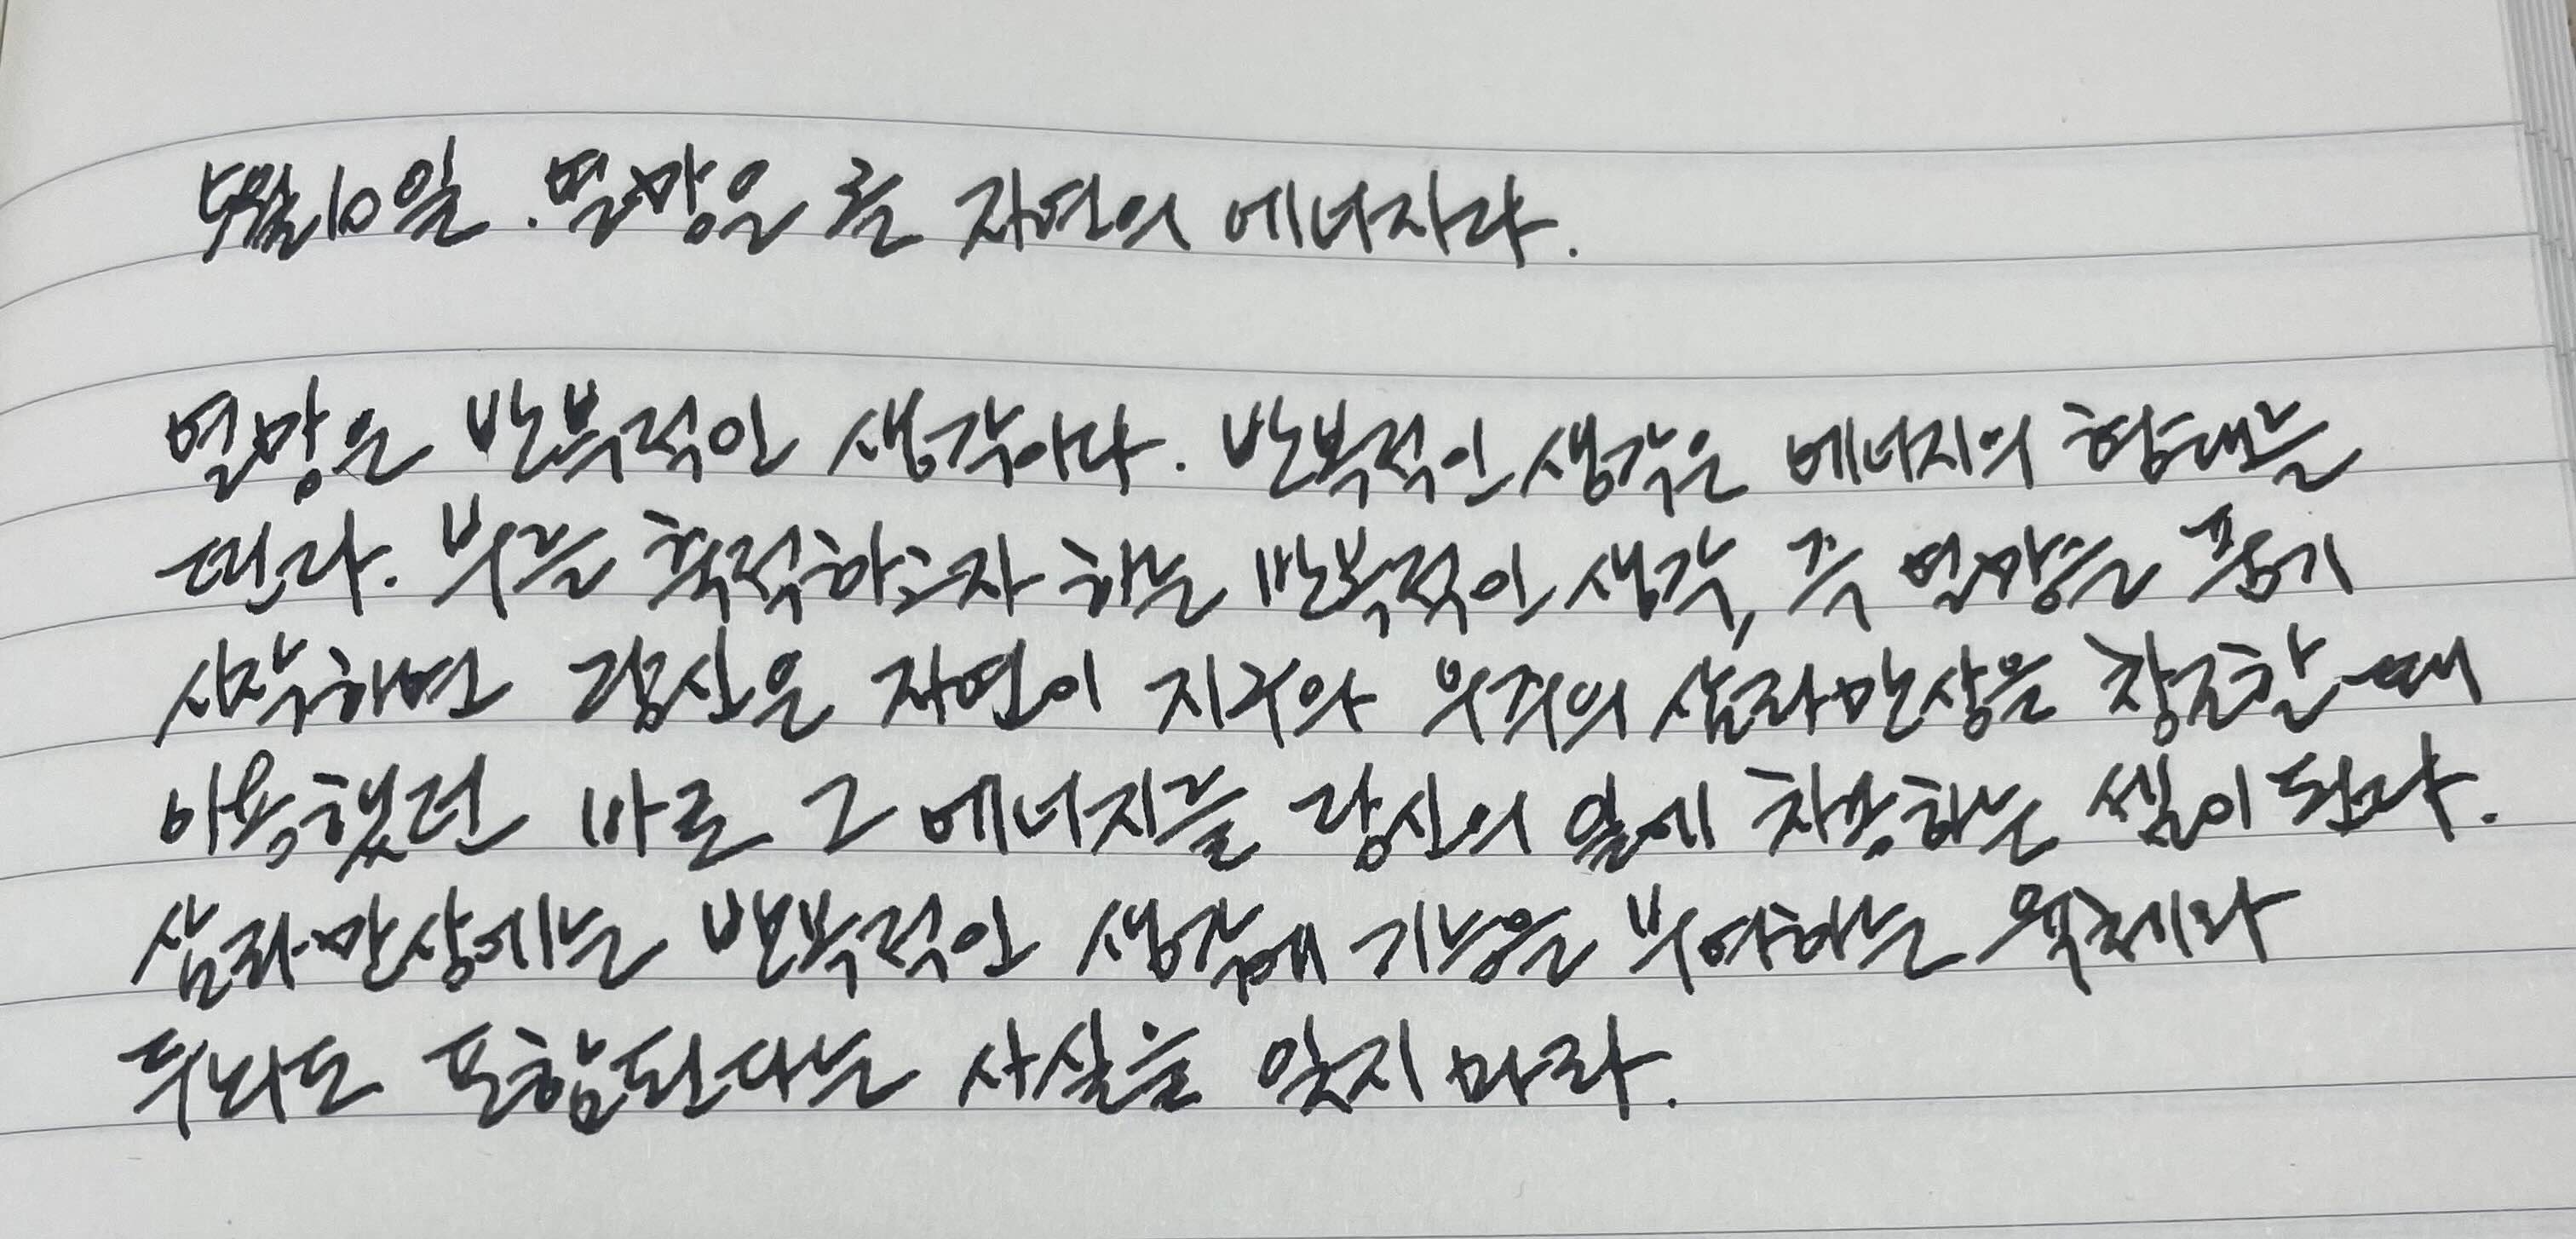 5월 10일. 열망은 곧 자연의 에너지다.
열망은 반복적인 생각이다. 반복적인 생각은 에너지의 형태를
띤다. 부를 축적하고자 하는 반복적인 생각, 즉 열망을 품기
시작하면 당신은 자연이 지구와 우주의 삼라만상을 창조할 때
이용했던 바로 그 에너지를 당신의 일에 차용하는 셈이 된다.
삼라만상에는 반복적인 생각에 기능을 부여하는 육체와
두뇌도 포함된다는 사실을 잊지 마라.